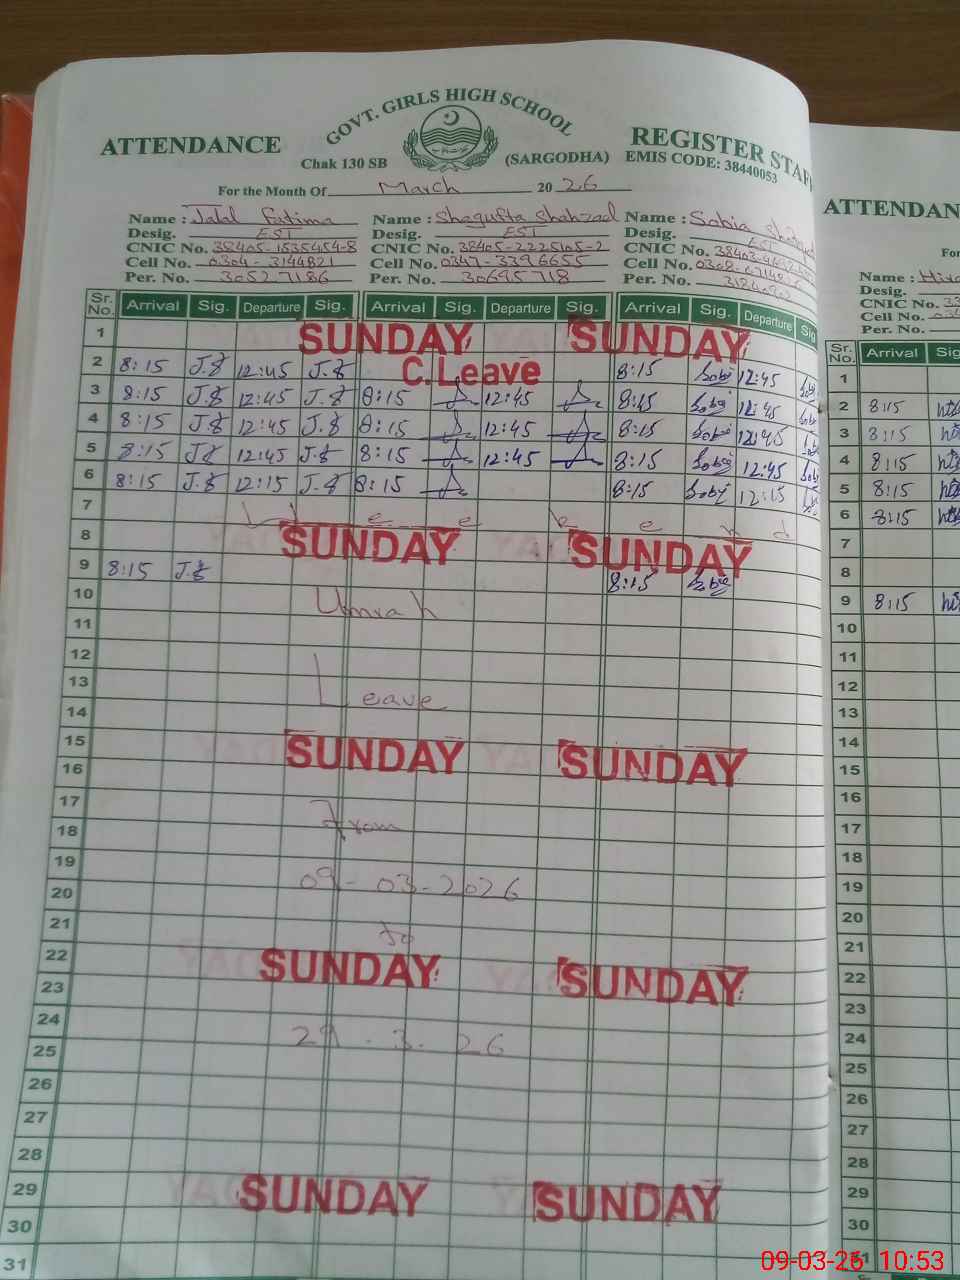 GOVT. GIRLS HIGH SCHOOL
ATTENDANCE
REGISTER STAF
Chak 130 SB
(SARGODHA)
EMIS CODE: 38440053
For the Month Of March 2026
Name : Jalal Fatima Name : Shagufta Shahzad Name : Sobia
Desig. EST Desig. EST Desig. EST
CNIC No. 38405-1535454-8 CNIC No. 38405-2225105-2 CNIC No.
Cell No. 0304-3144821 Cell No. 0347-3396655 Cell No.
Per. No. 30527186 Per. No. 30695718 Per. No.
Sr. No. Arrival Sig. Departure Sig. Arrival Sig. Departure Sig. Arrival Sig. Departure Sig
1 SUNDAY SUNDAY
2 8:15 J.f 12:45 J.f C.Leave 8:15 Sobi 12:45 Sobi
3 8:15 J.f 12:45 J.f 8:15 12:45 8:15 Sobi 12:45 Sobi
4 8:15 J.f 12:45 J.f 8:15 12:45 8:15 Sobi 12:45 Sobi
5 8:15 J.f 12:45 J.f 8:15 12:45 8:15 Sobi 12:45 Sobi
6 8:15 J.f 12:15 J.f 8:15 8:15 Sobi 12:15
7
8 SUNDAY SUNDAY
9 8:15 J.f 8:15 Sobi
10 Umrah
11
12
13 Leave
14
15 SUNDAY SUNDAY
16
17 From
18
19 09-03-2026
20
21 to
22 SUNDAY SUNDAY
23
24 29.3.26
25
26
27
28
29 SUNDAY SUNDAY
30
31
ATTENDAN
Fo
Name :
Desig.
CNIC No.
Cell No.
Per. No.
Sr. No. Arrival Sig
1
2 8:15
3 8:15
4 8:15
5 8:15
6 8:15
7
8
9 8:15
10
11
12
13
14
15
16
17
18
19
20
21
22
23
24
25
26
27
28
29
30
09-03-26 10:53